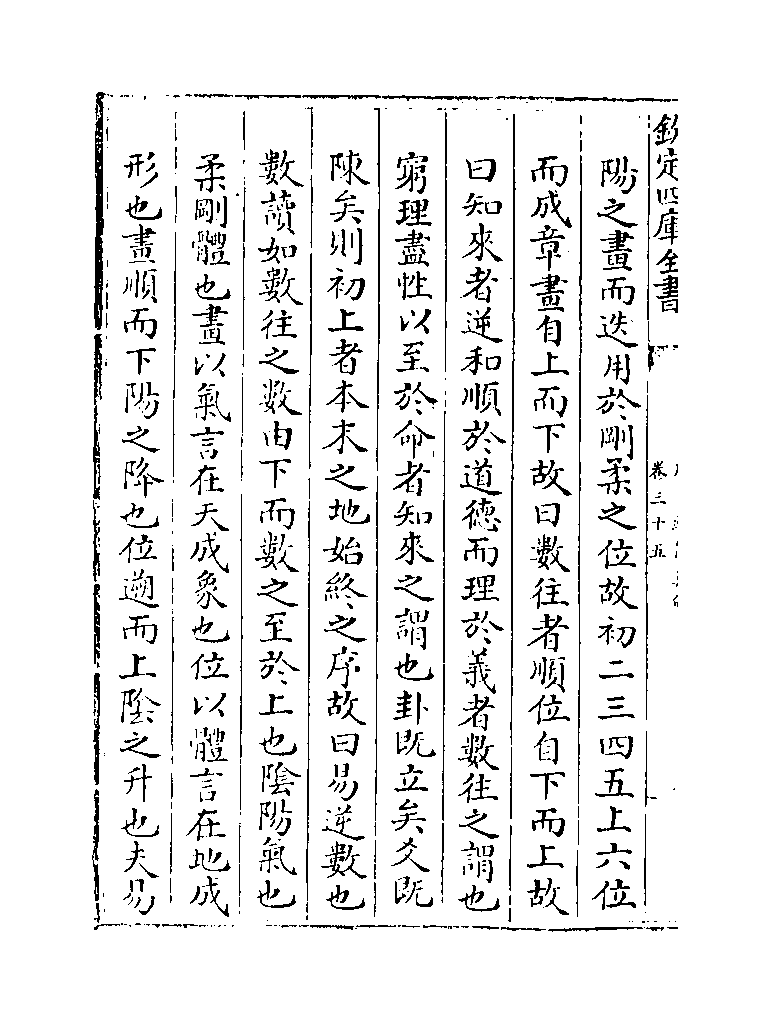 欽定四庫全書
卷三十五
陽之畫而迭用於剛柔之位故初二三四五上六位
而成章畫自上而下故曰數往者順位自下而上故
曰知來者逆和順於道德而理於義者數往之謂也
窮理盡性以至於命者知來之謂也卦既立矣爻既
陳矣則初上者本末之地始終之序故曰易逆數也
數讀如數往之數由下而數之至於上也陰陽氣也
柔剛體也畫以氣言在天成象也位以體言在地成
形也畫順而下陽之降也位遡而上陰之升也夫易